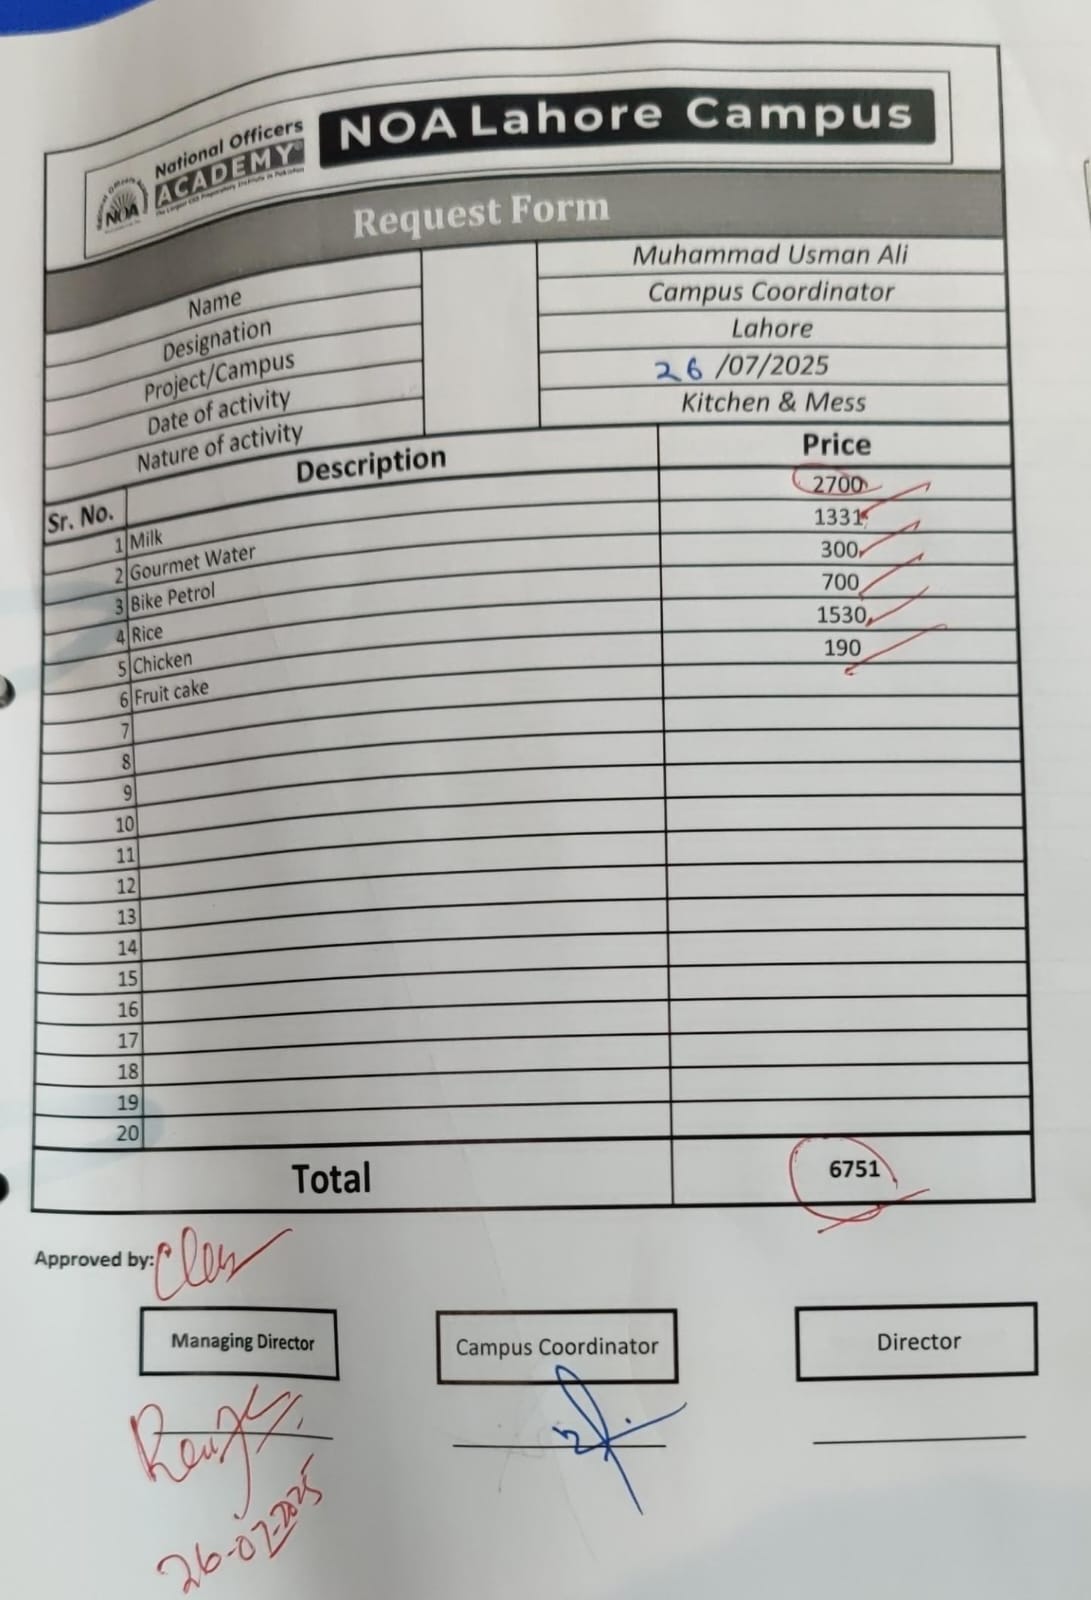 National Officers
ACADEMY
NOA
NOA Lahore Campus
Request Form
Name Muhammad Usman Ali
Designation Campus Coordinator
Project/Campus Lahore
Date of activity 26 /07/2025
Nature of activity Kitchen & Mess
Sr. No. Description Price
1 Milk 2700
2 Gourmet Water 1331
3 Bike Petrol 300
4 Rice 700
5 Chicken 1530
6 Fruit cake 190
7
8
9
10
11
12
13
14
15
16
17
18
19
20
Total 6751
Approved by:
Managing Director Campus Coordinator Director
26-07-2025